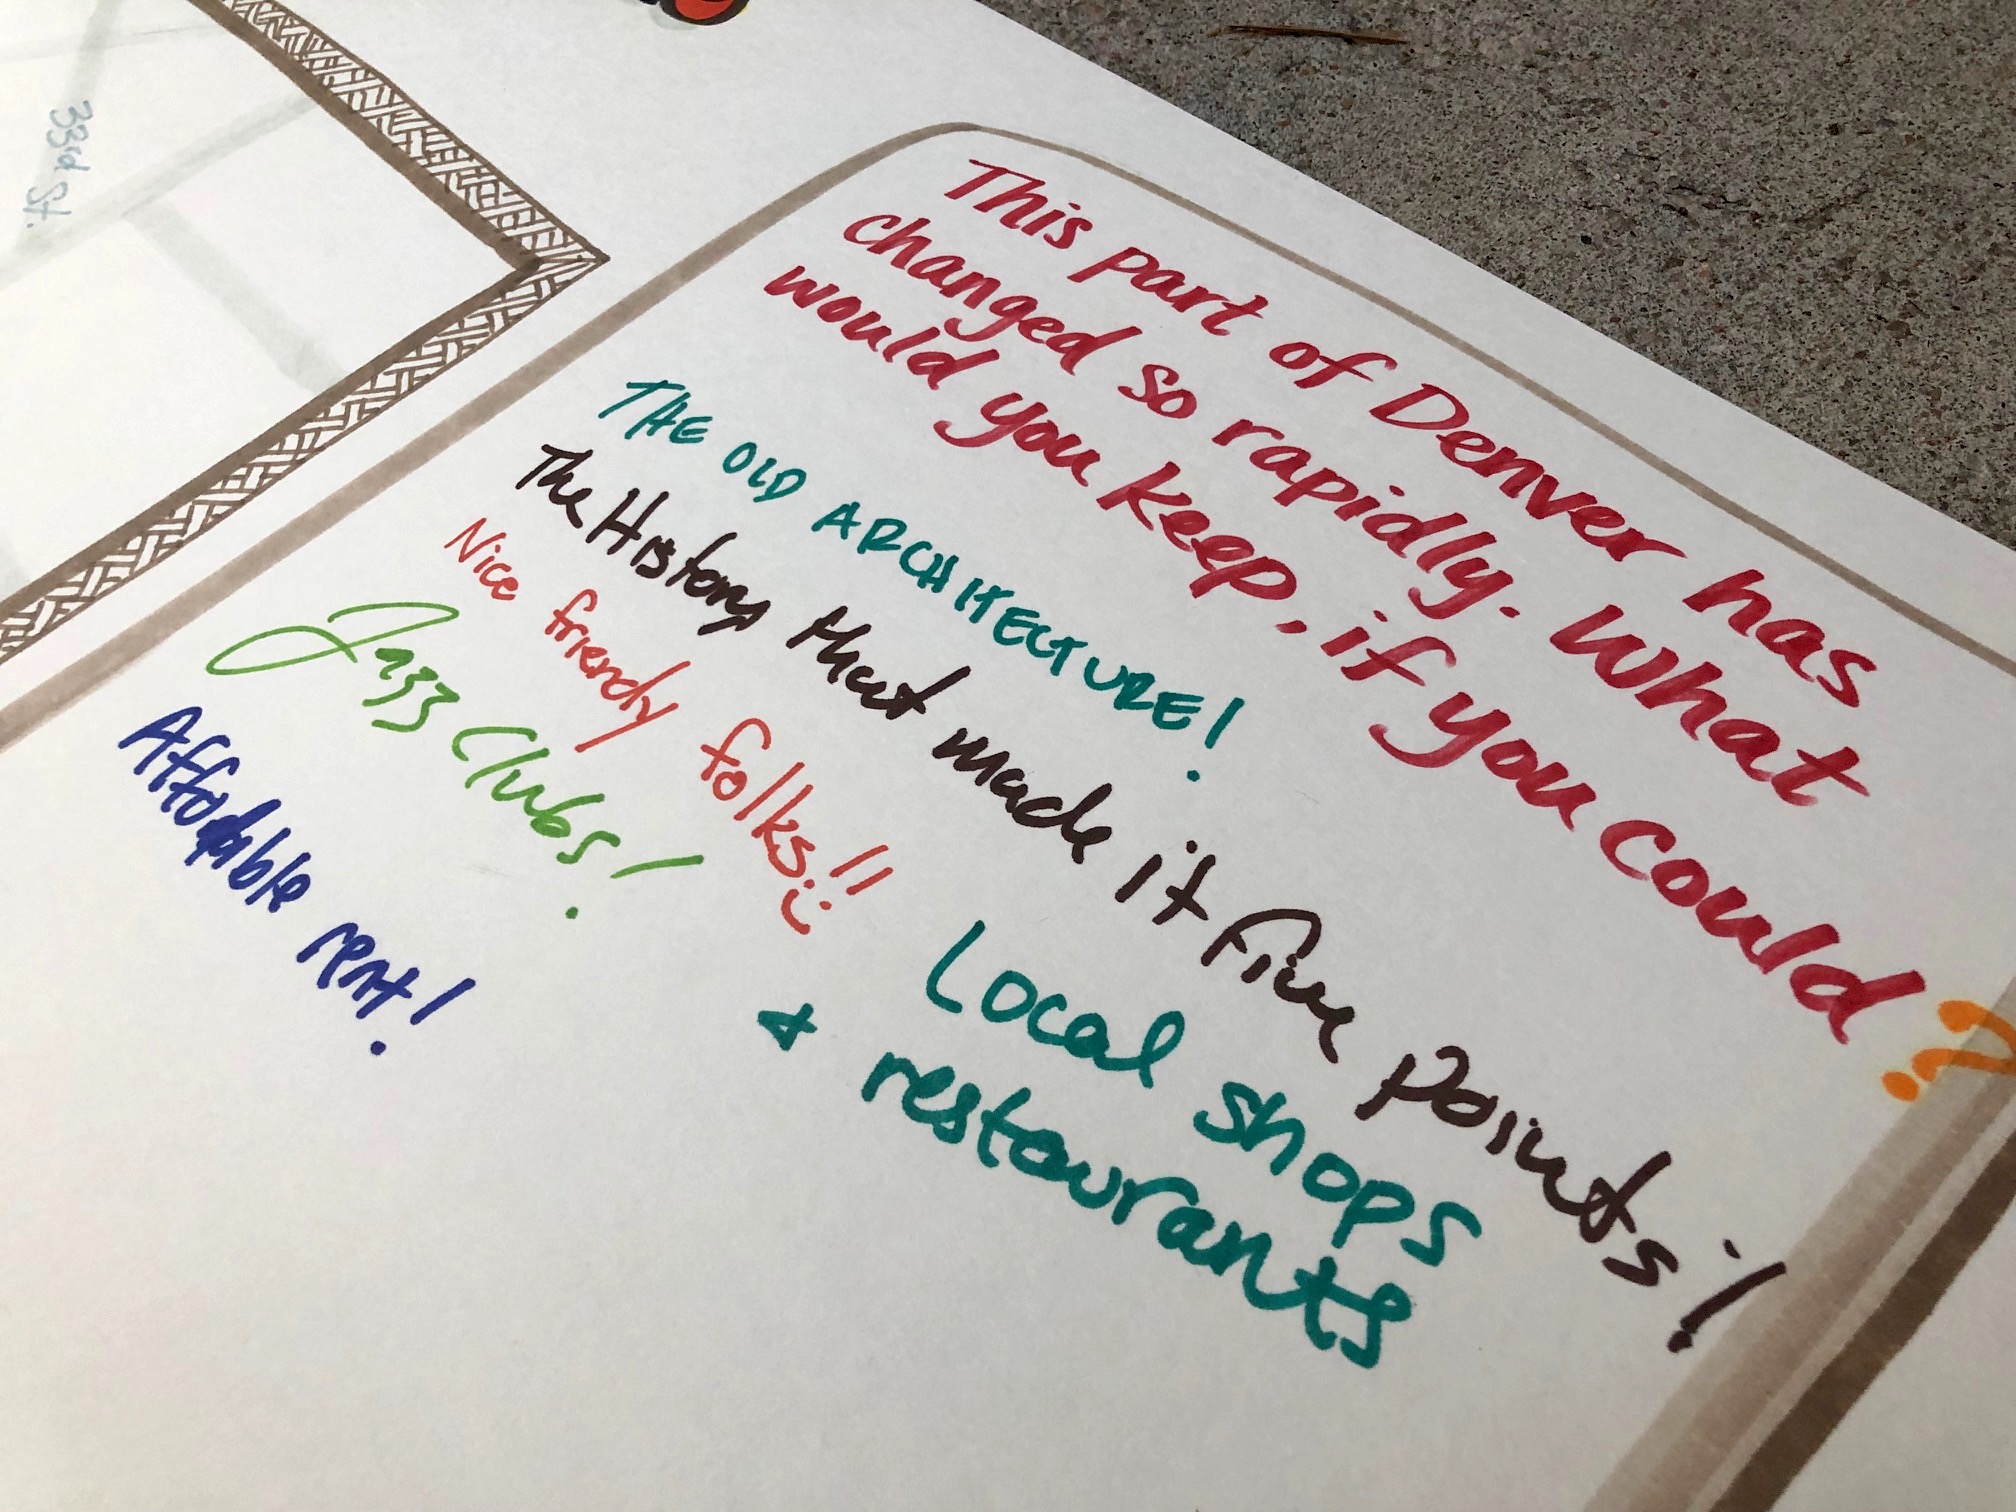 33rd St.
This part of Denver has
changed so rapidly. What
would you keep, if you could?
THE OLD ARCHITECTURE!
The History that made it Five points!
Nice friendly folks!! :)
Jazz Clubs!
Affordable rent!
Local shops
& restaurants